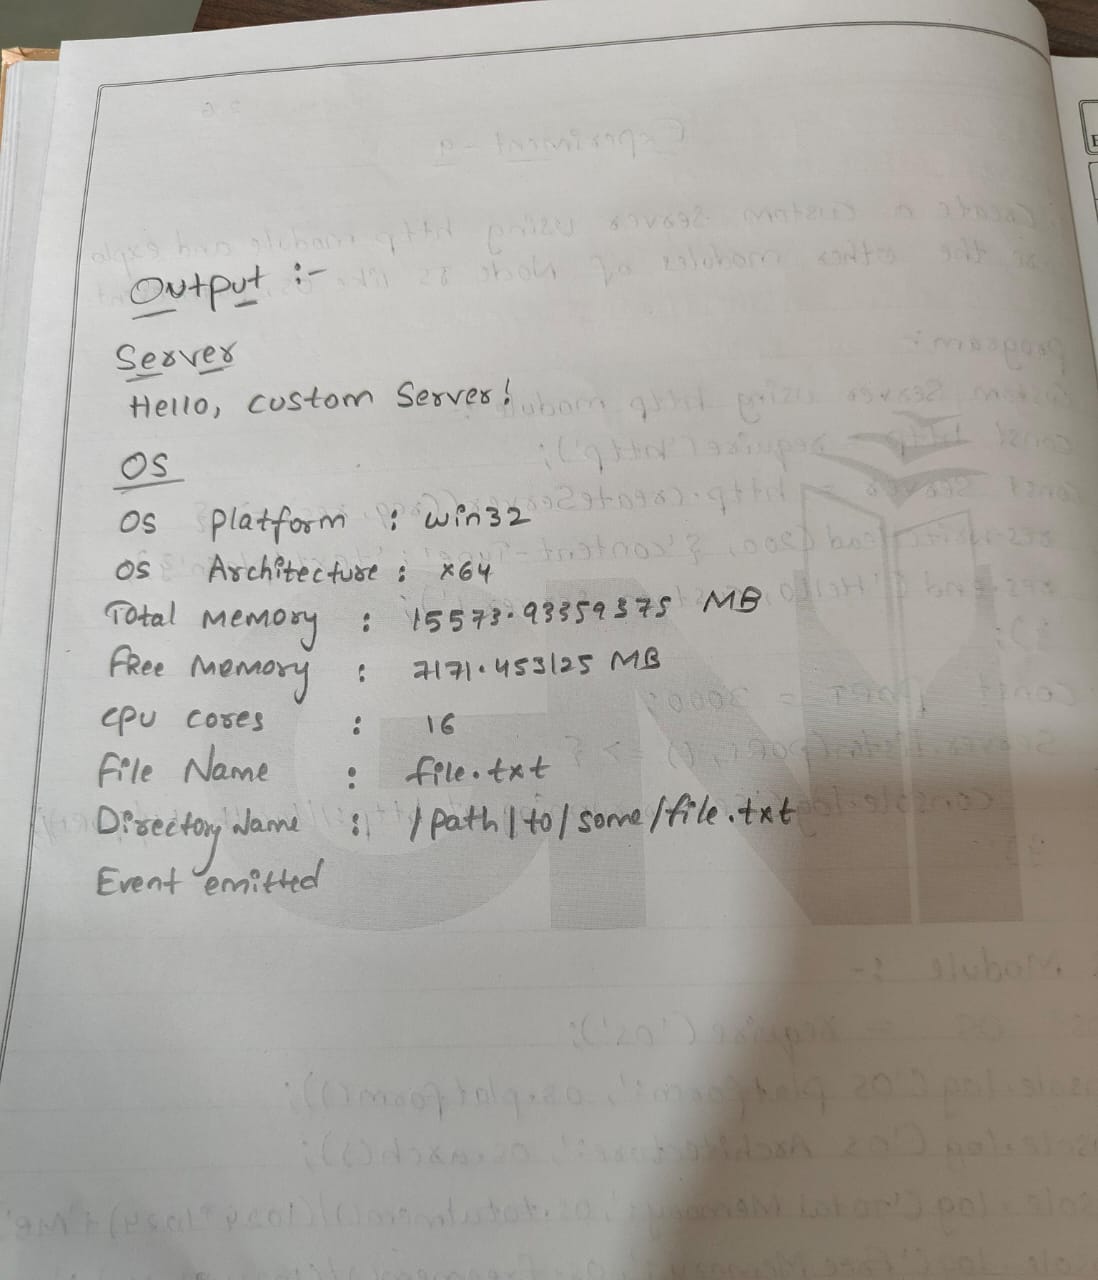 Output :-
Server
Hello, custom Server!
OS
OS Platform : win32
OS Architecture : x64
Total Memory : 15573.93359375 MB
Free Memory : 7171.453125 MB
CPU cores : 16
File Name : file.txt
Directory Name : /path/to/some/file.txt
Event emitted
GN